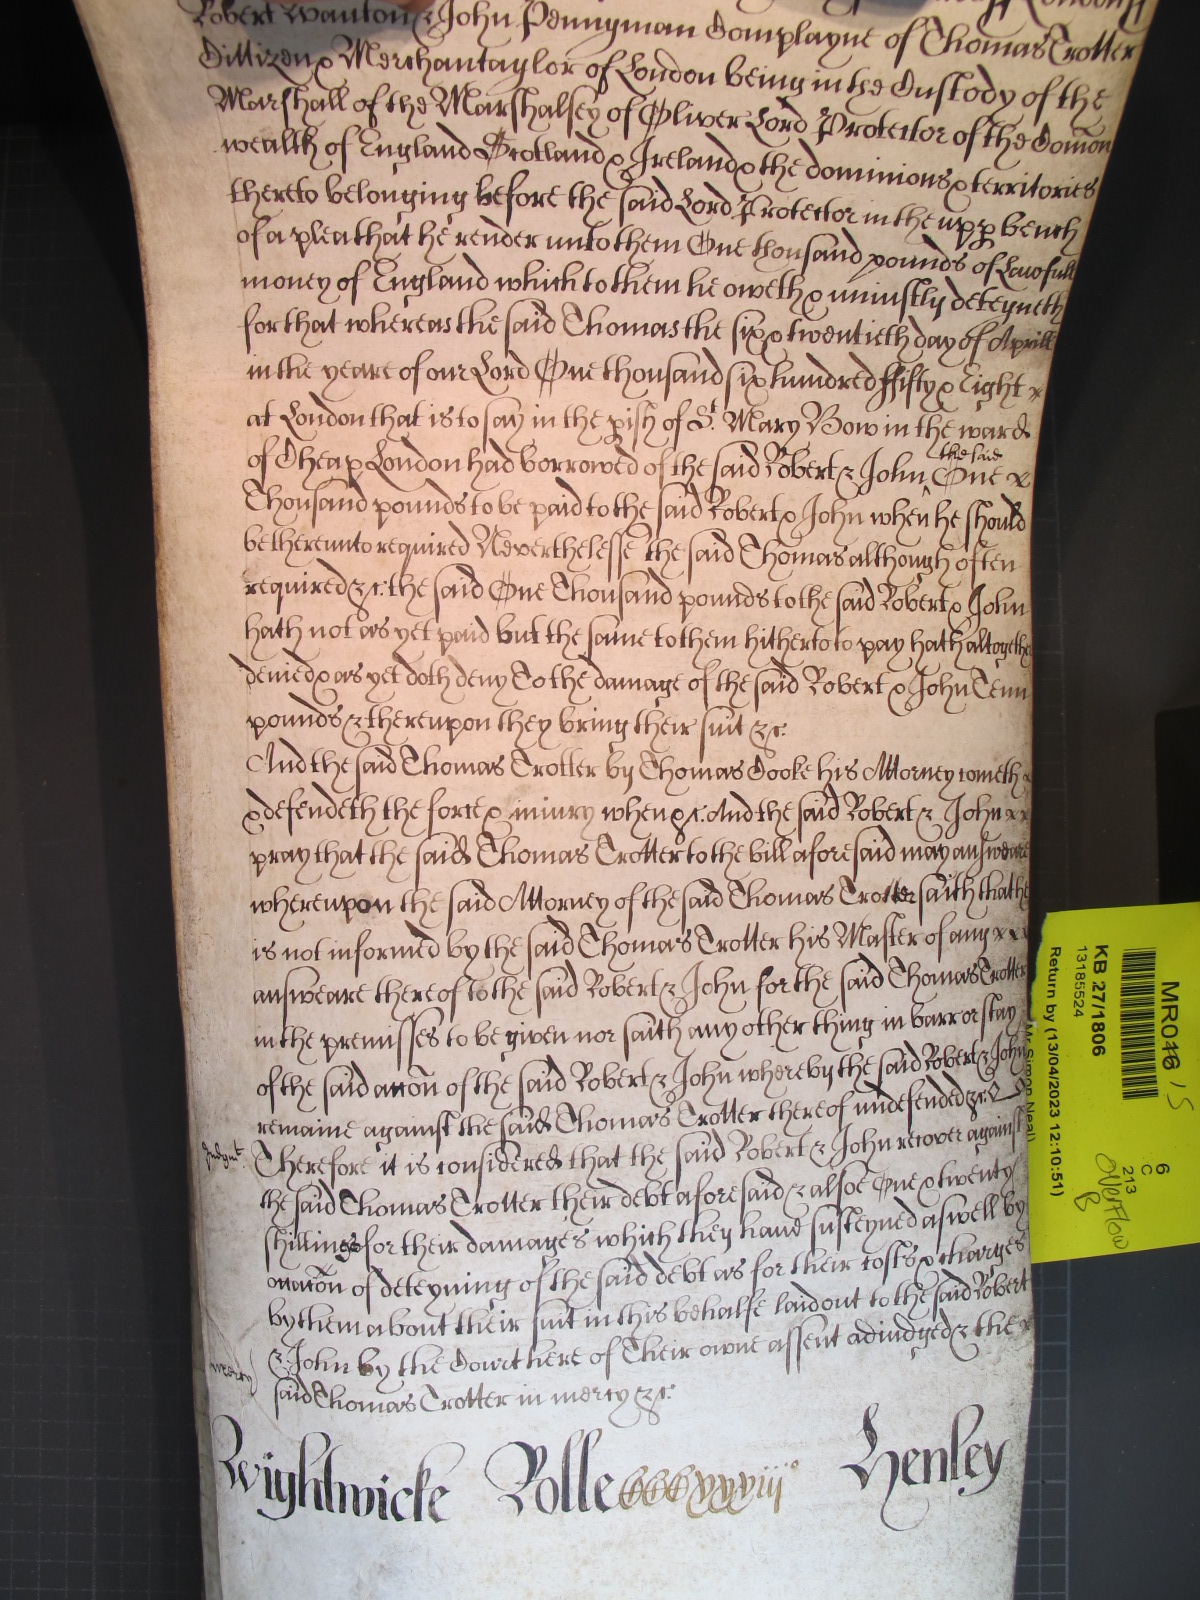 Robert Wanton & John Pennyman Complayne of Thomas Trotter
Cittizen & Merchantaylor of London being in the Custody of the
Marshall of the Marshalsey of Oliver Lord Protector of the Comon
wealth of England Scotland & Ireland & the dominions & territories
thereto belonging before the said Lord Protector in the upp bench
of a plea that he render unto them One thousand pounds of Lawfull
money of England which to them he oweth & uniustly deteyneth
for that whereas the said Thomas the six & twentieth day of Aprill
in the yeare of our Lord One thousand six hundred ffifty & Eight
at London that is to say in the pish of St. Mary Bow in the ward
of Cheap London had borrowed of the said Robert & John the said One
Thousand pounds to be paid to the said Robert & John when he should
be thereunto required Neverthelesse the said Thomas although often
required &c. the said One Thousand pounds to the said Robert & John
hath not as yet paid but the same to them hitherto to pay hath altogether
denied & as yet doth deny To the damage of the said Robert & John Tenn
pounds & thereupon they bring their suit &c.
And the said Thomas Trotter by Thomas Cooke his Attorney cometh
& defendeth the force & iniury when &c. And the said Robert & John
pray that the said Thomas Trotter to the bill aforesaid may answeare
whereupon the said Attorney of the said Thomas Trotter saith that he
is not informed by the said Thomas Trotter his Master of any
answeare thereof to the said Robert & John for the said Thomas Trotter
in the premisses to be given nor saith any other thing in barr or stay
of the said accon of the said Robert & John whereby the said Robert & John
remaine against the said Thomas Trotter thereof undefended &c.
Judgmt. Therefore it is considered that the said Robert & John recover against
the said Thomas Trotter their debt aforesaid & alsoe One & twenty
shillings for their damages which they have susteyned aswell by
occacon of deteyning of the said debt as for their costs & charges
by them about their suit in this behalfe laid out to the said Robert
& John by the Court here of Their owne assent adiudged & the
mercy said Thomas Trotter in mercy &c.
Wightwicke Rolle 666 xxxiii Henley
MR016 15
KB 27/1806
13185524
Return by (13/04/2023 12:10:51)
Mr Simon Neal)
6
C
213
Overflow
B